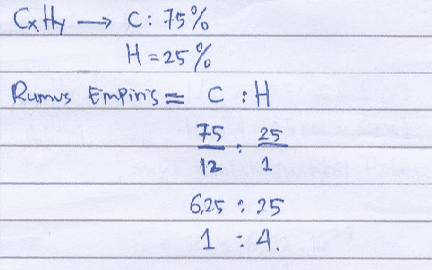 CxHy → C : 75%
H = 25%
Rumus Empiris = C : H
75/12 : 25/1
6,25 : 25
1 : 4.